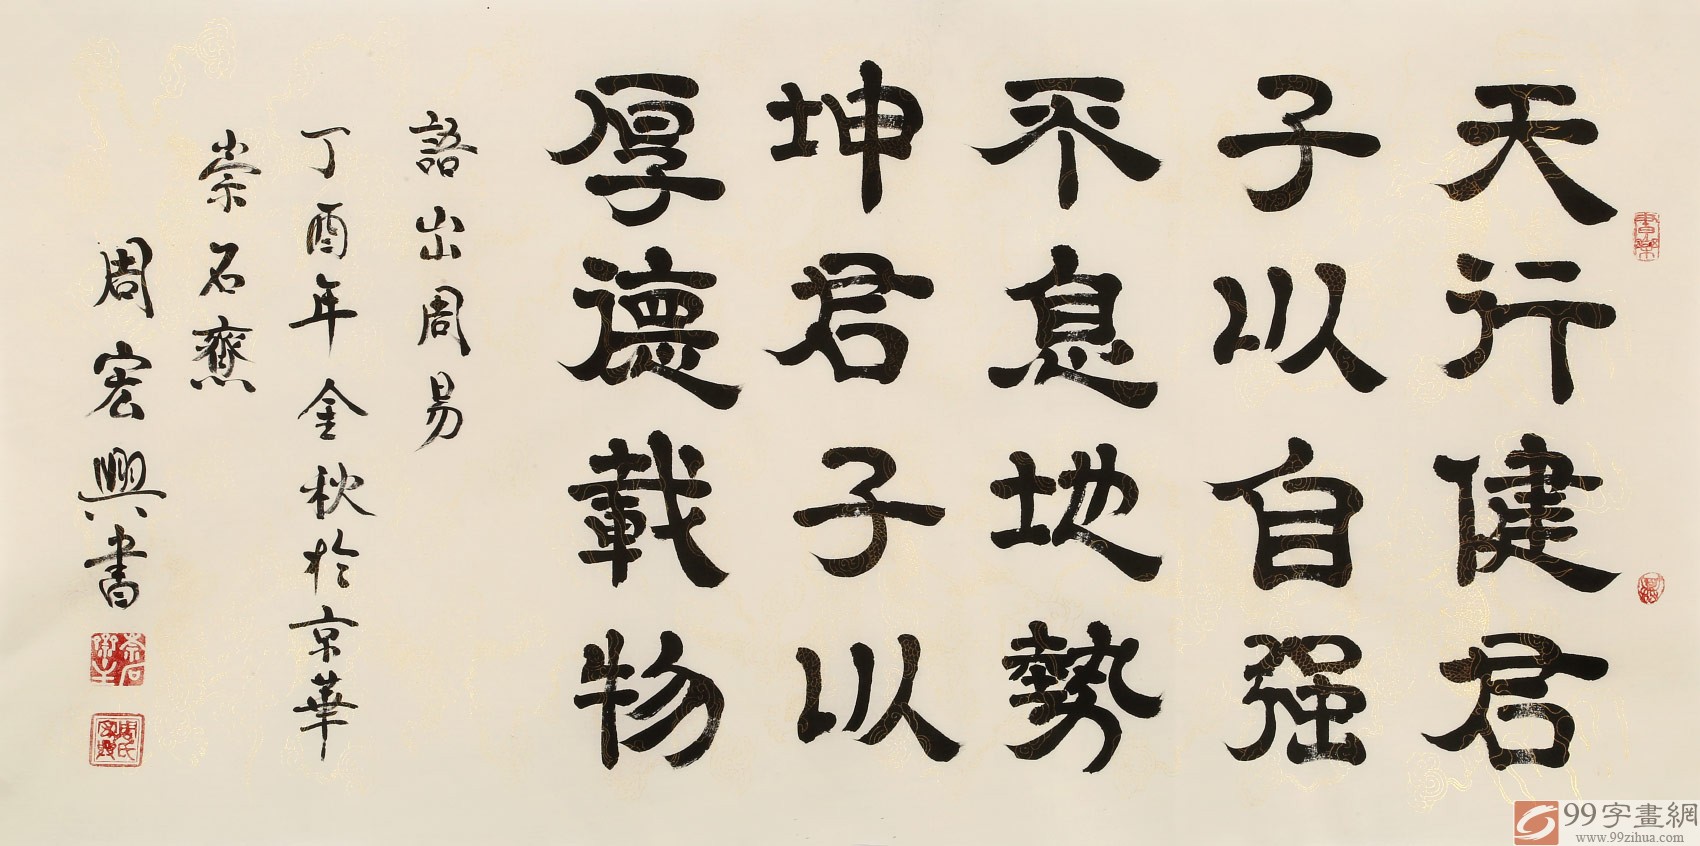 天行健君
子以自强
不息地勢
坤君子以
厚德載物
語出周易
丁酉年金秋於京華
崇石齋
周宏興書
99字畫網
www.99zihua.com